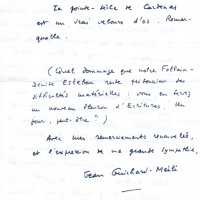 La pointe-sèche de Cardenas
est un vrai velours d'os. Remar-
quable.
(Quel dommage que notre Follain-
Denise Esteban reste prisonnier des
difficultés matérielles : vous en feriez
un nouveau fleuron d'Ecritures. Un
jour, peut-être ?)
Avec mes remerciements renouvelés,
et l'expression de ma grande sympathie,
Jean Guichard-Meili